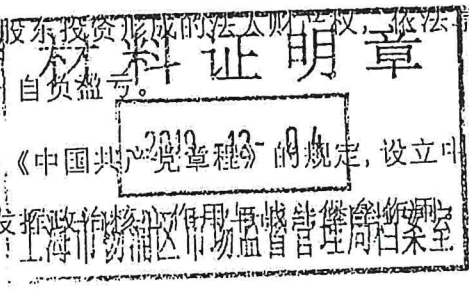 股东投资形成的法人财产权，依法
材料证明章
自负盈亏。
2019-12-04
《中国共产党章程》的规定，设立中
发挥政治核心作用
上海市杨浦区市场监督管理局档案室